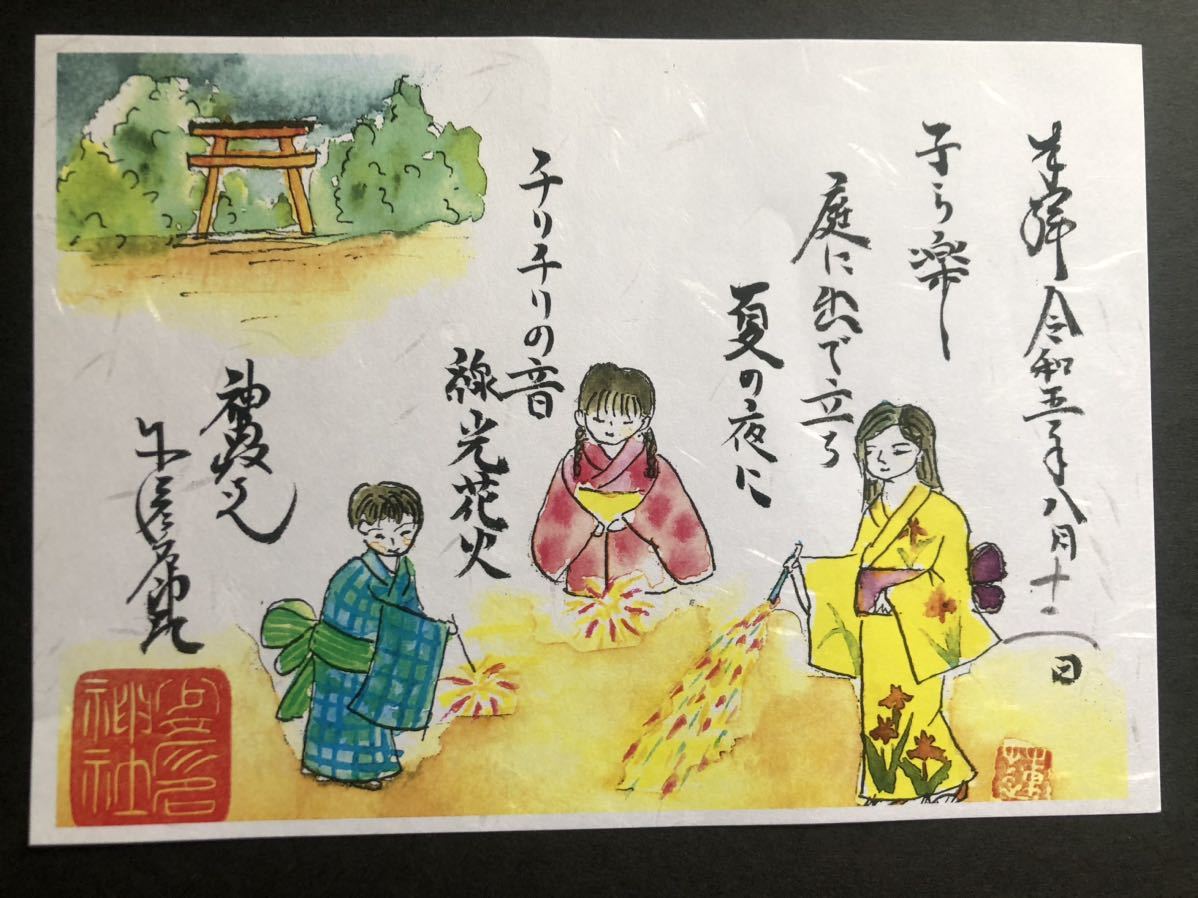 奉拝 令和五年八月十一日
子ら楽し
庭に出で立ち
夏の夜に
チリチリの音
線光花火
神社
蓮